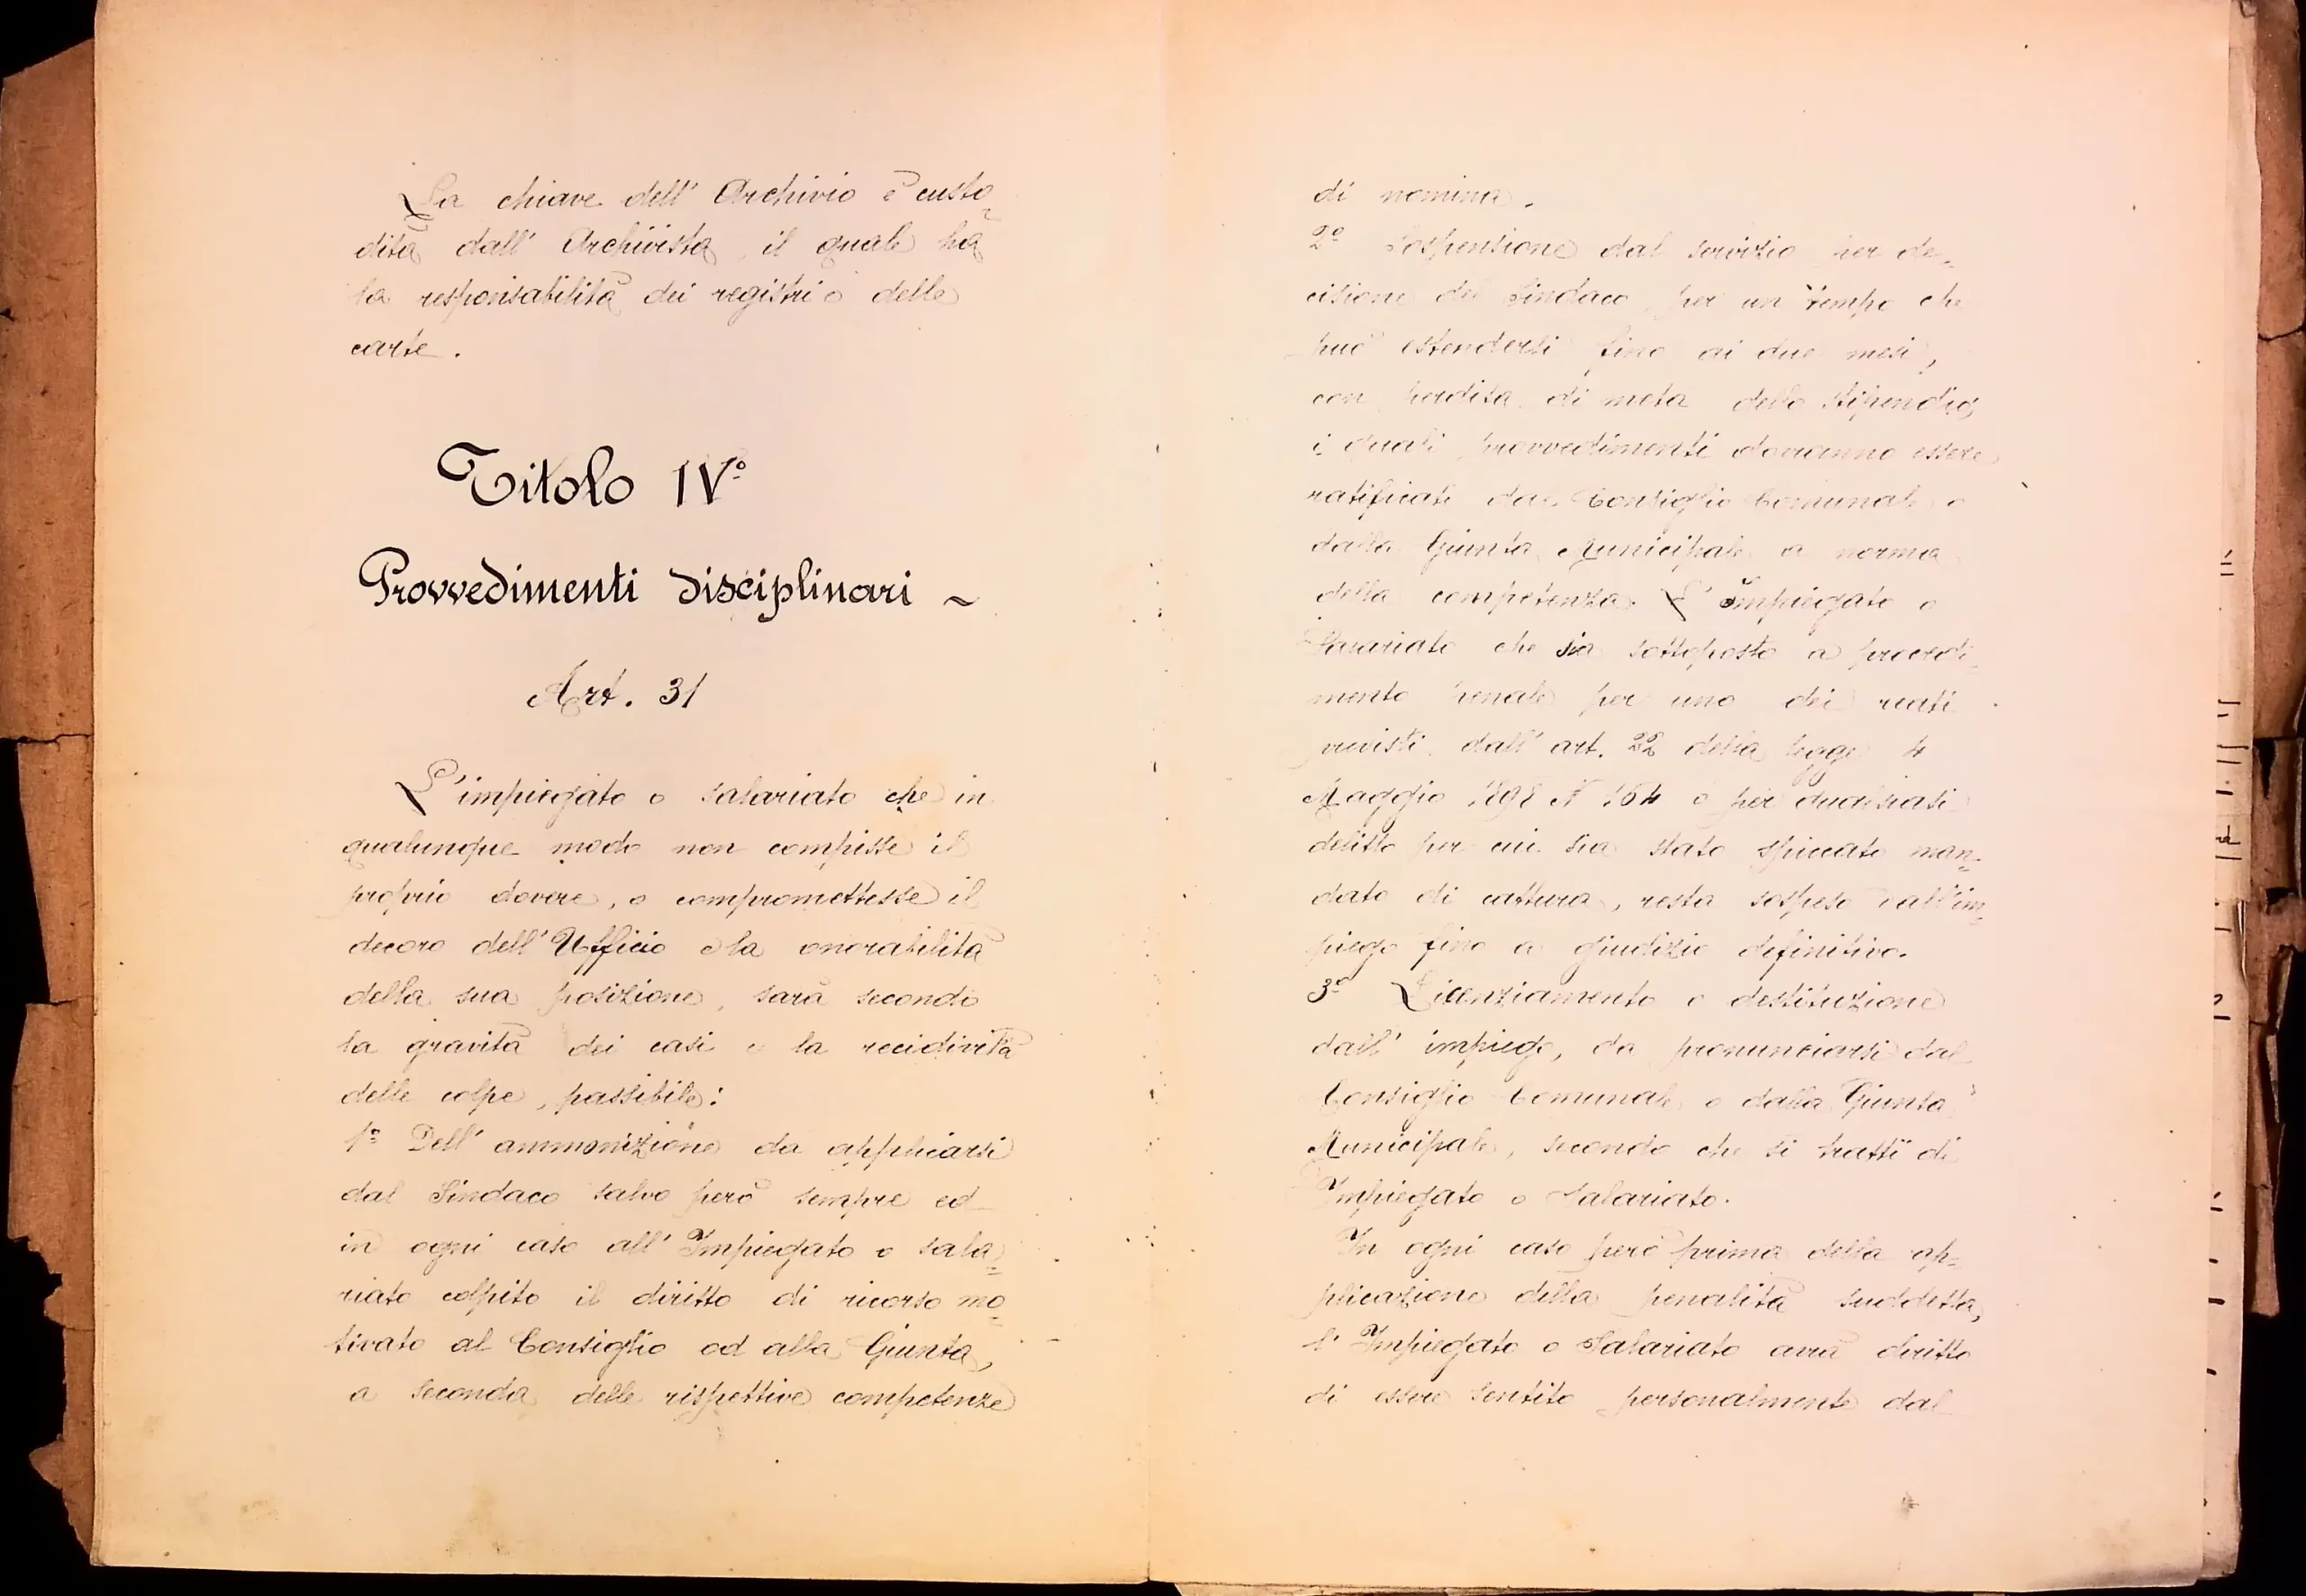 La chiave dell' Archivio è custo=
dita dall' Archivista, il quale ha
la responsabilità dei registri e delle
carte.
Titolo IVº
Provvedimenti disciplinari ~
Art. 31
L'impiegato o salariato che in
qualunque modo non compisse il
proprio dovere, o compromettesse il
decoro dell' Ufficio e la onorabilità
della sua posizione, sarà secondo
la gravità dei casi e la recidività
delle colpe, passibile:
1º Dell' ammonizione da applicarsi
dal Sindaco salvo però sempre ed
in ogni caso all' Impiegato o sala=
riato colpito il diritto di ricorso mo=
tivato al Consiglio od alla Giunta,
a seconda delle rispettive competenze
di nomina.
2º Sospensione dal servizio per de=
cisione del Sindaco per un tempo che
può estendersi fino ai due mesi,
con perdita di metà dello stipendio,
i quali provvedimenti dovranno essere
ratificati dal Consiglio Comunale o
dalla Giunta Municipale a norma
della competenza. L' Impiegato o
Salariato che sia sottoposto a procedi=
mento penale per uno dei reati
previsti dall' art. 22 della legge 4
Maggio 1898 N 164 o per qualsiasi
delitto per cui sia stato spiccato man=
dato di cattura, resta sospeso dall'im=
piego fino a giudizio definitivo.
3º Licenziamento o destituzione
dall' impiego, da pronunciarsi dal
Consiglio Comunale o dalla Giunta
Municipale, secondo che si tratti di
Impiegato o Salariato.
In ogni caso però prima della ap=
plicazione della penalità suddetta,
l' Impiegato o Salariato avrà diritto
di essere sentito personalmente dal